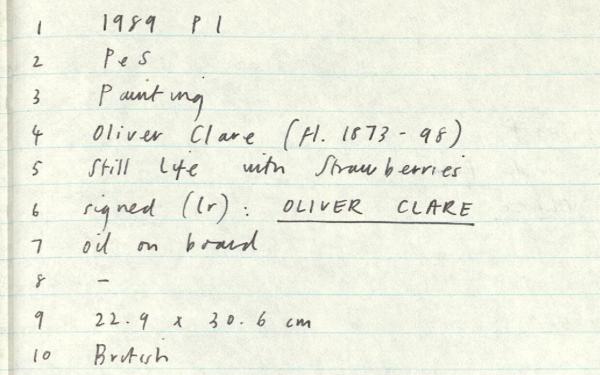 1 1989 P1
2 PeS
3 Painting
4 Oliver Clare (fl. 1873-98)
5 Still Life with Strawberries
6 signed (lr): OLIVER CLARE
7 oil on board
8 -
9 22.9 x 30.6 cm
10 British